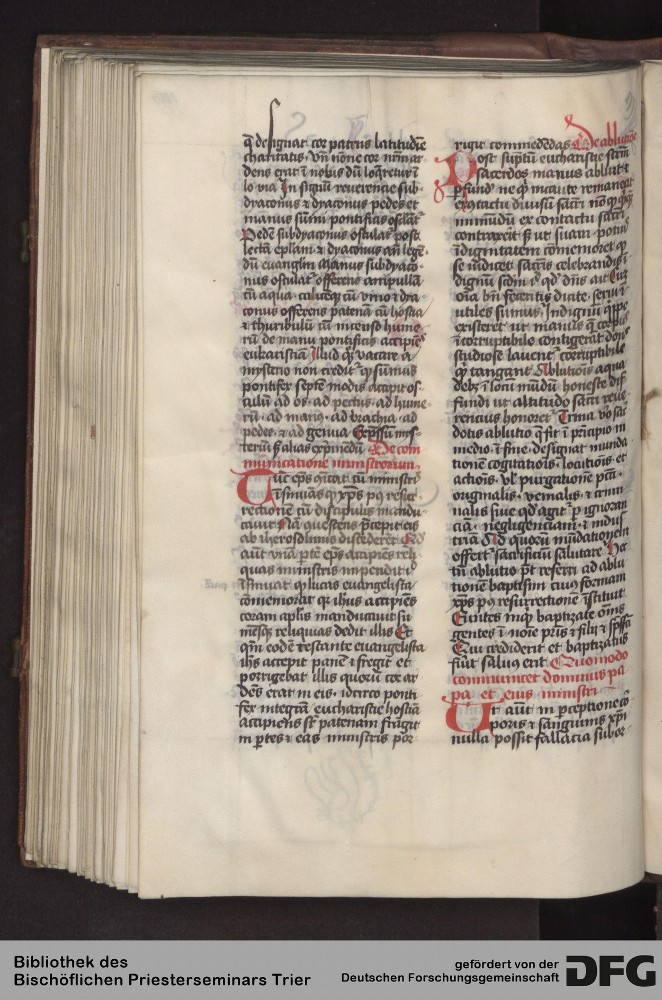 q̄ designat cor patris latitudīe
charitatis · vn̄ nōne cor nr̄m ar-
dens erat ī nobis dū loq̄retur ī
lo via In signū reuerencie sub-
dyaconus ⁊ dyaconus pedes et
manus sūmi pontificis osclāt᷑
Pedem subdyaconus osculat᷑ post
lectā eplam ⁊ dyaconus an̄ legē-
dū euangliū Manus subdyaco-
nus osculat᷑ offerens ampullā
cū aqua · calicēq̄ cū vino ⁊ dya-
conus offerens patenā cū hostia
⁊ thuribulū cū incenso hume-
rū de manu pontificis accipiēs
eukaristiā Illud q̄ vacare a
mysterio non credit᷑ q sūmus
pontifex septē modis accipit os-
culū ad os · ad pectus · ad hume-
rū · ad manus · ad brachia · ad
pedes · ⁊ ad genua
teriū alias exp̄mēdū De com
municatione ministrorum
Tūc ep̄s cū ministris
īsinuās q xp̄s pꝰ resur-
rectionē cū discipulis mandu-
cauit Nā questens p̄cepit eis
ab iherosolimis discederēt
aūt vnā ptē ep̄s accipiēs reli-
quas ministris impendit
īsinuat q lucas euangelista
cōmemorat qꝛ ihūs accipiēs
coram aplīs manducauit su-
mēsq̄ reliquias dedit illis Et
qm̄ eodē testante euangelista
ihs accepit panē ⁊ fregit et
porrigebat illis quorū cor ar-
dēs erat in eis · idcirco ponti-
fex integrā eucharistie hostiā
accipiens sr̄ patenam frāgit
in ptes ⁊ eas ministris por-
rigit commededas De ablutiōe
Post suptū eucharistie sacrm̄
sacerdos manus abluit ⁊
pfundit ne q̄ incaute remaneat
ex tactu diuini sacri
inmūdū ex contactu sacri
contraxerit s ut suam potius
īdignitatem cōmemoret q
se iudicet sacris celebrandis ī
dignū sc̄dm i qd dn̄s ait Cū
oīa bn̄ feceritis dicite · serui ī
utiles sumus · Indignū q̄ppe
existeret ut manus q̄ corpus
īcorruptibile contigerāt dōni
studiose lauent᷑ corruptibile
q̄ tangant Ablutiōis aqua
debꝫ ī locū mūdū honeste dif-
fundi ut altitudo sacri reue-
rencius honoret᷑ Trina vo sac-
dotis ablutio q̄ fit ī prīcipio in
medio · ⁊ fine · designat munda
tionē cogitatiōis · locutiōis et
actiōis · vl purgationē pcti
originalis · venialis · ⁊ crimi-
nalis siue qd agit᷑ p ignoran-
ciā · negligenciam · ⁊ indus-
triā Ad quorū mūdationem
offert᷑ sacrificiū salutare
tū ablutio pt̄ referri ad ablu-
tionē baptismi cuiꝰ formam
xp̄s pꝰ resurrectionē īstituit
Euntes inq̄ baptizate omēs
gentes ī noīe p̄ris ⁊ filij ⁊ sp̄ssci
Qui crediderit et baptizatus
fūit saluꝰ erit Quomodo
communicet dominus pa
pa et eius ministri
Ut aūt in pceptione cō-
poris ⁊ sanguinis xp̄i
nulla possit fallacia subor-
Bibliothek des
Bischöflichen Priesterseminars Trier
gefördert von der
Deutschen Forschungsgemeinschaft
DFG